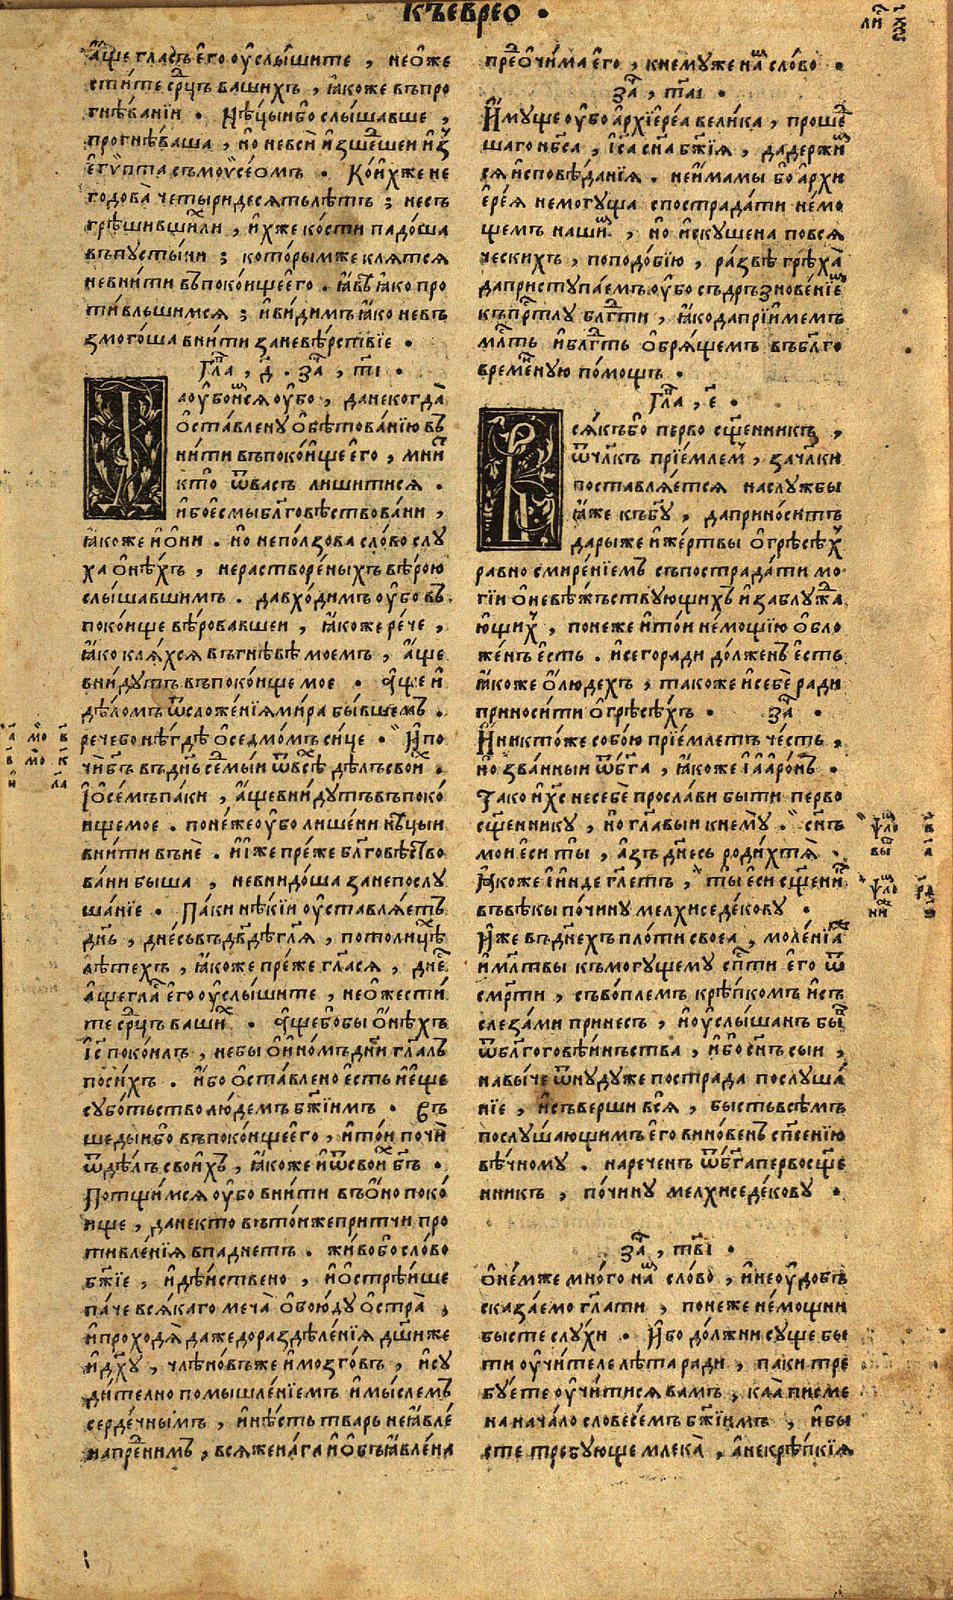 къеврео ·
а҆́ще гласъ е҆го̀ ᲂу҆слы́шите , нео҆же
сти́те ср҃цъ вашихъ , ꙗ҆́коже въпро
гнѣ́ванїи · Нѣ́цыи҆бо слы́шавше ,
прогнѣ́ваша , но̀ невсѝ и҆зше́дшеи и҆з̾
е҆гѵ́пта съмоѵ̈се́омъ · Ко́ихже не
годова̀ четы́ридесѧтьлѣ́тъ ; несъ
грѣ́шившили , и҆́хже ко́сти падо́ша
въпусты́ни ; кото́рымже клѧ́тсѧ
невни́ти въпоко́ищеего̀ . ꙗ҆́вѣ ꙗ҆́ко про
ти́вльшимсѧ ; и҆ви́димъ ꙗ҆́ко невъ
змого́ша вни́ти заневѣ́рствїе ·
Гла̀ , д҃ . за҄ , т҃і ·
аᲂу҆бои́мсѧ ᲂу҆́бо , данекогда̀
ѻ҆ста́влену ѻ҆бѣтова́нїю въ
ни́ти въпоко́ище его̀ , мни́т
кто̀ ѿвасъ лиши́тисѧ ·
и҆́боесмы бл҃говѣствова́ни ,
ꙗ҆́коже и҆ѻ҆ни . но̀ непо́лзова сло́во слу
ха ѻ҆нѣ́хъ , нерастворе́ныхъ вѣ́рою
слы́шавшимъ . давхо́димъ ᲂу҆́бо въ
поко́ище вѣ́ровавшеи , ꙗ҆́коже ре́че ,
ꙗ҆́ко клѧ́хсѧ въгнѣ́вѣ моемъ , а҆́ще
вни́дутъ въпоко́ище мое · а҆́ще и҆
дѣ́ломъ ѿсложе́нїѧ ми́ра бы́вшемъ .
рече бо нѣ́гдѣ ѻ҆седмо́мъ си́це · И҆по
чѝ бг҃ъ въдн҃ь се́мыи ѿвсѣ́х дѣ́лъ свои́х ·
І҆ѻ҆се́мъ па́ки , а҆́ще вни́дутъ въпоко́
ище мое . поне́же ᲂу҆́бо лише́ни нѣ́цыи
вни́ти вънѐ . и҆и҆́же пре́же бл҃говѣ́ство
вани быша , невнидо́ша занепослу
ша́нїе · Па́ки нѣ́кїи ᲂу҆ставлѧ́етъ
дн҃ь , дне́сь въдв҃дѣ гл҃ѧ , потоли́цѣх
лѣ́техъ , ꙗ҆́коже пре́же гл҃асѧ , дне́с
а҆́ще гла́с е҆го̀ ᲂу҆слы́шите , нео҆жести́
те ср҃цъ ваши́х · а҆́щебо бы ѻ҆́нѣхъ
і҆с҃ поко́илъ , небы ѻ҆и҆но́мъ дни́ гл҃алъ
поси́хъ . И҆́бо ѻ҆ста́влено е҆́сть и҆е҆ще
субо́тьство лю́демъ бж҃їимъ . въ
шедыи҆бо въпоко́ищеего̀ , и҆то́и почи́
ѿдѣ́лъ свои́хъ , ꙗ҆́коже и҆ѿсвои́х бг҃ъ .
Потщи́мсѧ ᲂу҆́бо вни́ти въѻ҆́но поко́
ище , данекто въто́иже при́тчи про
тивле́нїѧ впаднетъ . жи́вобо сло́во
бж҃їе , и҆дѣ́иствено , и҆ѻ҆стрѣ́ише
па́че всѧ́каго меча̀ ѻ҆бою́ду ѻ҆стра̀ ,
и҆проходѧ̀ даже дораздѣле́нїѧ дш҃иже
и҆дх҃у , чле́новъже и҆мозго́въ , и҆су
ди́телно помышле́нїемъ и҆мы́слемъ
серде́чнымъ , и҆нѣ́сть тварь неꙗвле́
на пре́дни́мъ , всѧ́же на́га и҆ѻ҆бъꙗвле́на
пре́дочи́ма его , кнему́же на́м сло́во ·
за҄ , та҃і ·
И҆муще ᲂу҆́бо а҆рхїере́а вели́ка , проше́д
шаго нб҃са , і҆са сн҃а бж҃їѧ , да держи́м
сѧ и҆сповѣ́данїѧ . неи҆мамы бо а҆рхи
е҆ре́ѧ немогуща спострада́ти немо
щемъ наши́м , но̀ и҆скушена повсѧ
ческихъ , поподо́бїю , ра́звѣ грѣ́ха̀
да приступа́емъ ᲂу҆́бо съдръзнове́нїем
къпр҃тлу бл҃гти , ꙗ҆́кодапрїи́мемъ
мл҃ть и҆бл҃гть ѻ҆брѧ́щемъ въбл҃го
време́ную по́мощь .
Гла̀ , е҃ ·
сѧ́къбо перво сщ҃енникъ ,
ѿчл҃къ прїе́млем , зачл҃ки
поставлѧ́етсѧ наслу́жбы
ꙗ҆́же къбг҃у , даприно́ситъ
да́рыже и҆же́ртвы ѻ҆грѣсѣ́х
равно смире́нїемъ съпострада́ти мо
гїи ѻ҆невѣ́жъствующихъ и҆заблужа
ющих , понеже и҆то́и не́мощїю ѻ҆бло
же́нъ е҆́сть . и҆сего́ради до́лженъ е҆́сть
ꙗ҆́коже ѻ҆лю́дехъ , та́коже и҆себѐ ра́ди
приноси́ти ѻ҆грѣсѣ́хъ · за҄ ·
И҆никто́же собо́ю прїе́млетъ че́сть ,
но̀ зва́нныи ѿбг҃а , ꙗ҆́коже і҆а҆аро́нъ .
Тако и҆х҃с несебѐ просла́ви бы́ти перво
сщ҃еннику , но̀ гл҃авыи кнему̀ . сн҃ъ
мои еси ты̀ , а҆́зъ дне́сь роди́хтѧ̀ .
ꙗ҆́коже і҆и҆нде гл҃етъ , ты̀ еси сщ҃енник
въвѣ́кы по́чину мелхиседе́кову ·
И҆́же въдне́хъ пло́ти своеа , моле́нїѧ
и҆мл҃твы къмогущему сп҃сти его ѿ
см҃рти , съво́племъ крѣ́пкомъ и҆съ
слеза́ми принесъ , и҆ᲂу҆слы́шанъ бы́с
ѿбл҃гоговѣ́инъства , и҆́бо сн҃ъ сыи ,
навы́че ѿнудуже пострада послуша́
нїе , и҆съверши всѧ̀ , бысть всѣ́мъ
послу́шающимъ е҆го̀ вино́венъ сп҃сенїю
вѣ́чному . наречен ѿбг҃а первосщ҃е
нникъ , по́чину мелхиседе́кову .
за҄ , тв҃і ·
ѻ҆не́мже мно́го на́м сло́во , и҆неᲂу҆до́бь
сказа́емо гл҃ати , понеже не́мощни
бы́сте слу́хи . И҆́бо до́лжни суще бы
ти ᲂу҆чи́теле лѣ́та ради , па́ки тре
бу́ете ᲂу҆чи́тисѧ вамъ , ка́ѧ писме
на нача́ло слове́семъ бж҃їимъ , и҆бы
сте требу́юще млека̀ , а҆некрѣ́пкїѧ